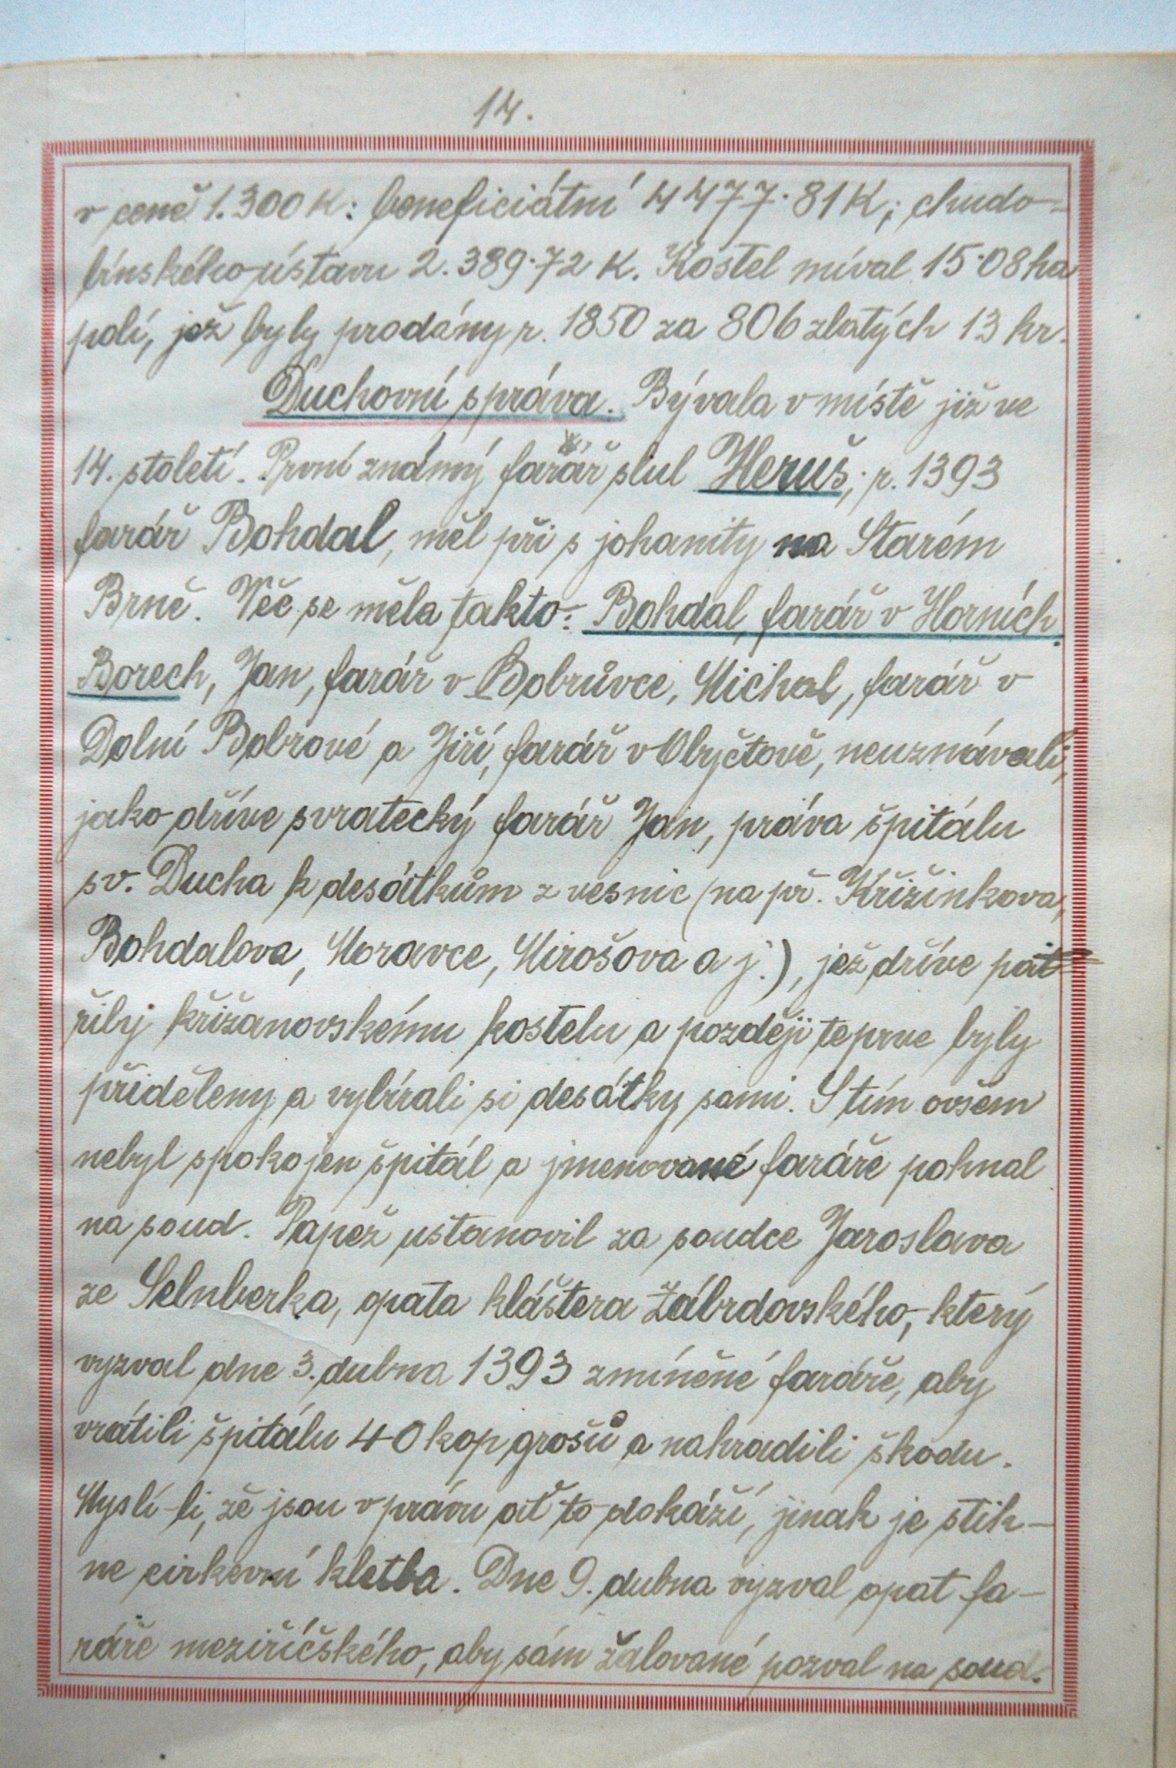 14.
v ceně 1.300 K: beneficiátní 4477·81 K; chudo-
bínského ústavu 2.389·72 K. Kostel míval 15·08 ha
polí, jež byly prodány r. 1850 za 806 zlatých 13 kr.
Duchovní správa. Bývala v místě již ve
14. století. První známý farář slul Heruš; r. 1393
farář Bohdal, měl při s johanity na Starém
Brně. Věc se měla takto: Bohdal, farář v Horních
Borech, Jan, farář v Bobrůvce, Michal, farář v
Dolní Bobrové a Jiří, farář v Obyčtově, neuznávali,
jako dříve svratecký farář Jan, práva špitálu
sv. Ducha k desátkům z vesnic (na př. Křižinkova,
Bohdalova, Moravce, Mirošova a j.), jež dříve pat-
řily křižanovskému kostelu a později teprve byly
přiděleny a vybírali si desátky sami. S tím ovšem
nebyl spokojen špitál a jmenované faráře pohnal
na soud. Papež ustanovil za soudce Jaroslava
ze Selnberka, opata kláštera Zábrdovského, který
vyzval dne 3. dubna 1393 zmíněné faráře, aby
vrátili špitálu 40 kop grošů a nahradili škodu.
Myslí-li, že jsou v právu ať to dokáží, jinak je stih-
ne církevní kletba. Dne 9. dubna vyzval opat fa-
ráře meziříčského, aby sám žalované pozval na soud.